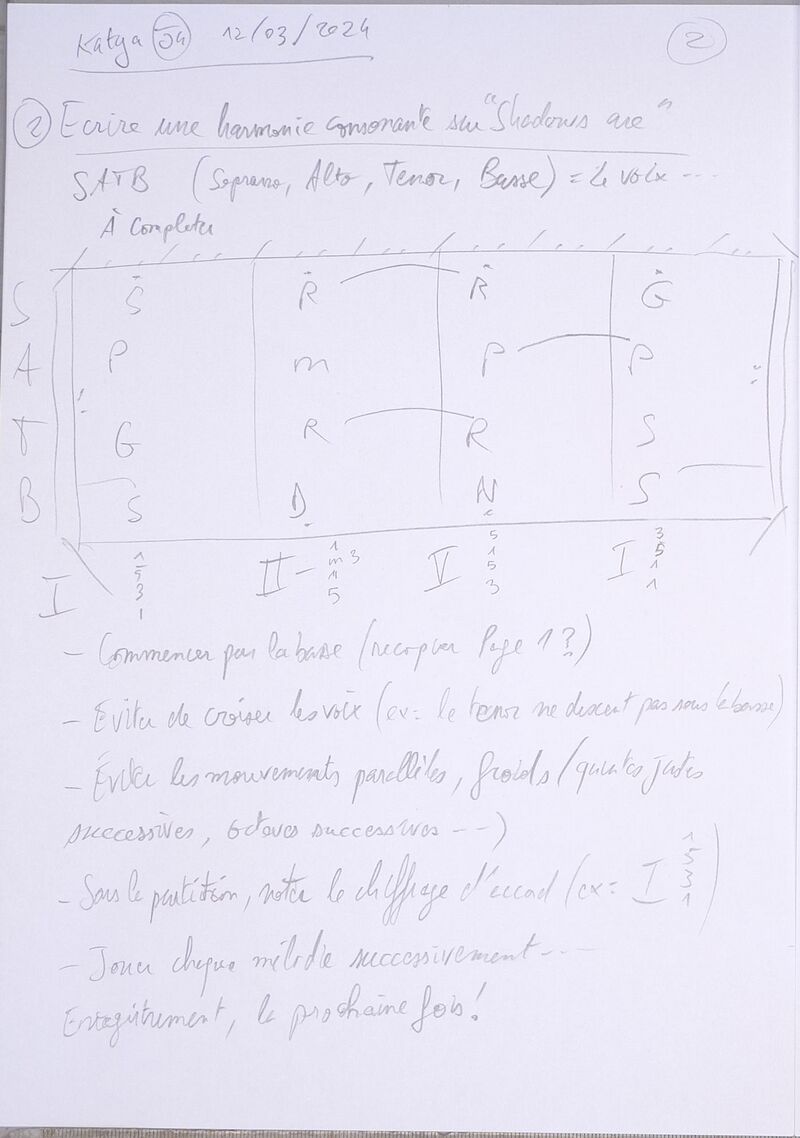 Katya 12/03/2024 2
2 Ecrire une harmonie consonante sur "Shadows are"
SATB (Soprano, Alto, Tenor, Basse) = 4 voix ...
À Completer
S Ṡ Ṙ Ṙ Ġ
A P m P P
T G R R S
B S Ḍ Ṇ S
I 1 5 3 1 II- 1 m3 1 5 V 5 1 5 3 I 3 5 1 1
- Commencer par la basse (recopier Page 1?)
- Eviter de croiser les voix (ex = le tenor ne descent pas sous la basse)
- Éviter les mouvements parallèles, froids (quintes justes
successives, octaves successives ---)
- Sous la partition, noter le chiffrage d'accord (ex = I 1 5 3 1)
- Jouer chaque mélodie successivement ---
Enregistrement, la prochaine fois!